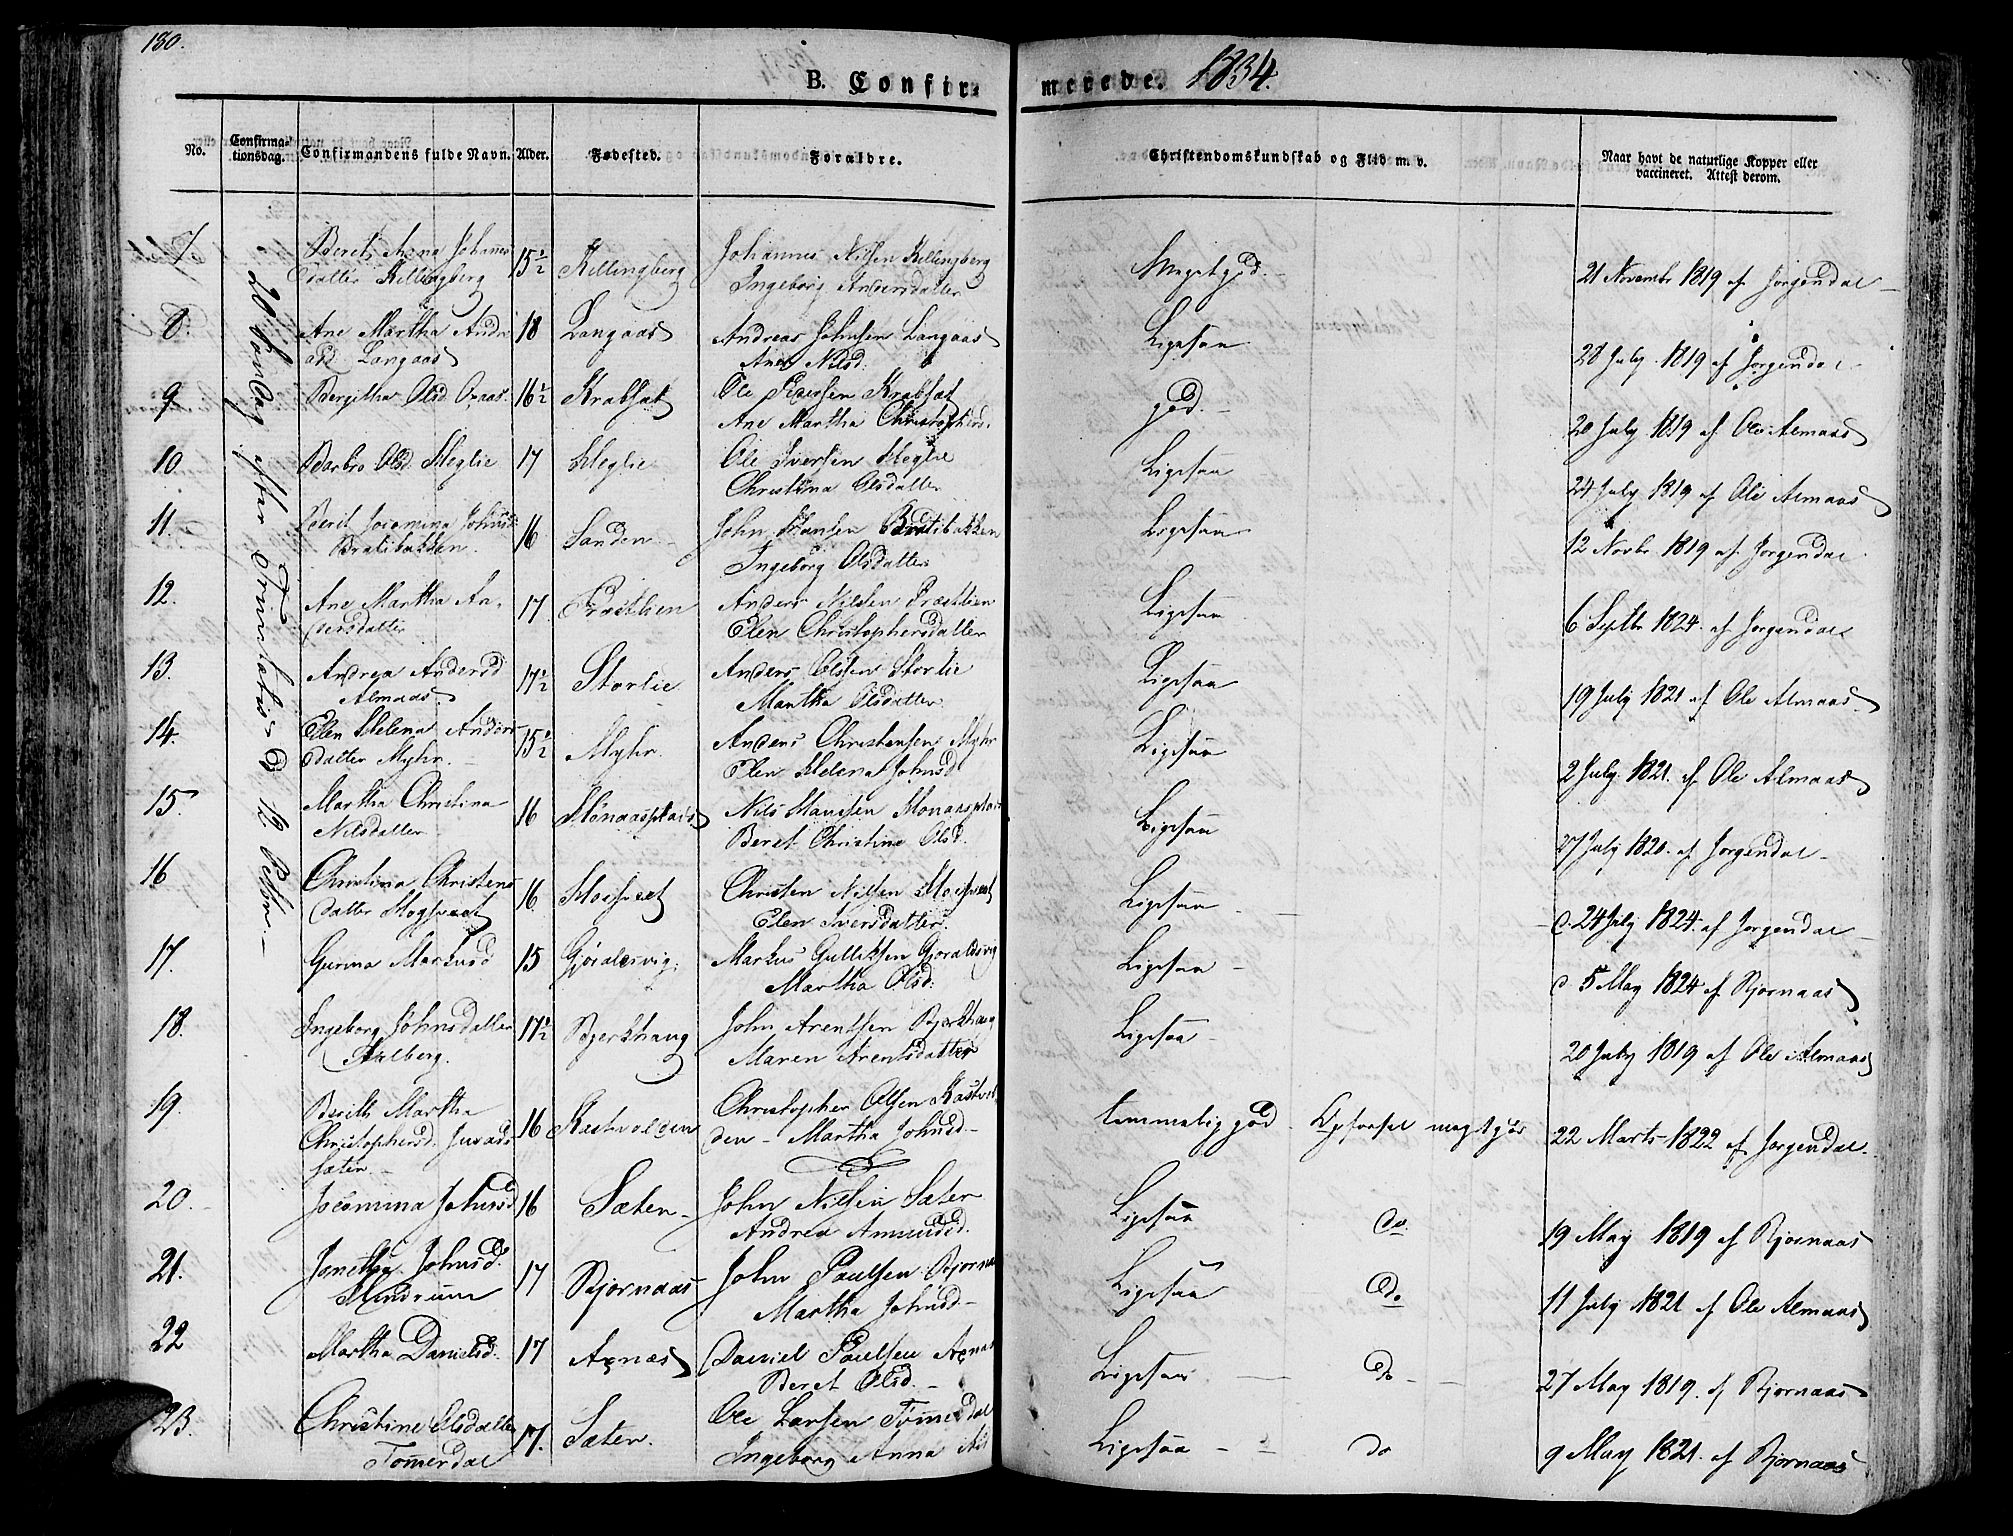 180.
B. Confir merede. 1834.
No. Confirma-tionsdag. Confirmandens fulde Navn. Alder. Fødested. Foraldre. Christendomskundskab og Flid m. v. Naar havt de naturlige Kopper eller vaccineret. Attest derom.
20 Søndag efter Trinitatis d 12 Octbr.
7 Berit Anna Johannes 15½ Killingberg Johannes Nilsen Killingberg Megetgod. 21 Novembr 1819 af Jørgendal
datter Killingberg Ingeborg Andersdatter
8. Ane Martha Andre 18 Langaas Andreas Johnsen Langaas Ligesaa 28 July 1819 af Jørgendal
asd Langaas Ane Nilsd.
9 Bergitha Olsd 16½ Krabsæt Ole Krabsæt god. 20 July 1819 af Ole Almaas
Ane Martha Christophers.
10 Barbro Olsd Heglie 17 Heglie Ole Iversen Heglie Ligesaa 24 July 1819 af Ole Almaas
Christina Olsdatter
11. Berit Jocomina Johns 16 Sanden John Hansen Bratibakken Ligesaa 12 Novbr 1819 af Jørgendal
Bratibakken. Ingeborg Olsdatter
12. Ane Martha An- 17. Præstlien Anders Nilsen Præstlien Ligesaa 6 Septbr 1824 af Jørgendal
dersdatter Elen Christophersdatter
13. Andrea Andersd 17½ Storlie Anders Olsen Storlie Ligesaa 19 July 1821 af Ole Almaas
Almaas Martha Olsdatter
14. Elen Helena Anders 15½ Myhr. Anders Christensen Myhr Ligesaa 2 July 1821 af Ole Almaas
datter Myhr. Elen Helena Johnsd
15. Martha Christina 16 Nils Hansen Ligesaa 27 July 1820. af Jørgendal
Nilsdatter Beret Christina Olsd.
16 Christina Christens 16. Christen Nilsen Ligesaa d. 24 July 1824. af Jørgendal
datter Elen Iversdatter.
17. Gurina Markusd 15 Markus Gulliksen Ligesaa d. 5 May 1824 af Bjørnaas
Martha Olsd.
18. Ingeborg Johnsdatter 17½ Bjerkhaug John Arentsen Bjerkhaug Ligesaa 20 July 1819 af Ole Almaas
Aalberg. Maren Arentsdatter
19. Berith Martha 16 Kastvolden Christopher Olsen Kastvol temmelig god Opførsel megtgod 22 Marts 1822 af Jørgendal
Christophersd. den - Martha Johnsd
sæter
20. Jocomina Johnsd 16 Sæter John Nilsen Sæter Ligesaa do. 19 May 1819 af Bjørnaas
Andrea Amundsd.
21. Johnsd. 17 Bjørnaas John Paulsen Bjørna Ligesaa do 11 July 1821 af Ole Almaas
Mindruum Martha Johnsd
22 Martha Danielsd. 17 Axnæs Daniel Paulsen Axnæs Ligesaa do 27 May 1819. af Bjørnaas
Beret Olsd.
23. Christine Olsdatter 17. Sæter. Ole Larsen Tømerdal Ligesaa do 9 May 1821. af Bjørnaas
Tømerdal Ingeborg Anna